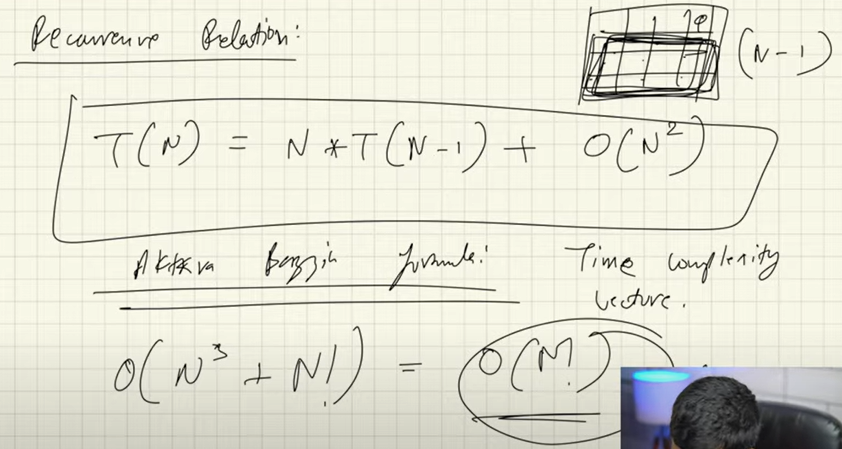 Recurrence Relation:
(N-1)
T(N) = N * T(N-1) + O(N²)
Formula:
Time complexity
Lecture.
O(N³ + N!) = O(N!)